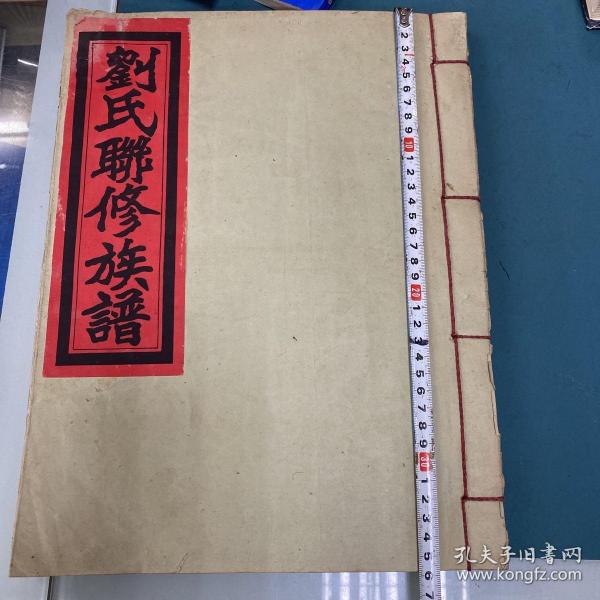 劉氏聯修族譜
2 3 4 5 6 7 8 9 10 1 2 3 4 5 6 7 8 9 20 1 2 3 4 5 6 7 8 9 30 1 2 3 4 5 6 7
孔夫子旧书网
www.kongfz.com